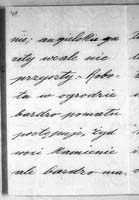 nic; angielska ga
zety wcale nie
przyszły. Robo-
ta w ogrodzie
bardzo pomału
postępuje, żyd
wozi kamienie
ale bardzo ma